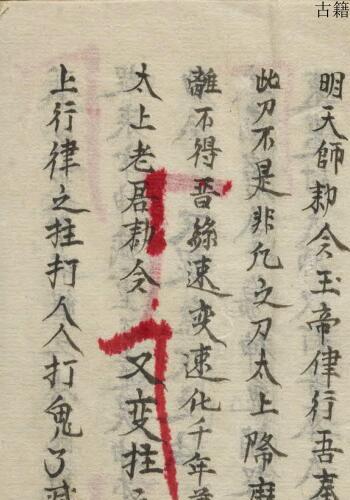 古籍
明天師勅令玉帝律行吾奉
此刀不是非凡之刀太上降魔
離不得吾絲速变速化千年
太上老君勅令又变拄
上行律之拄打人人打鬼了